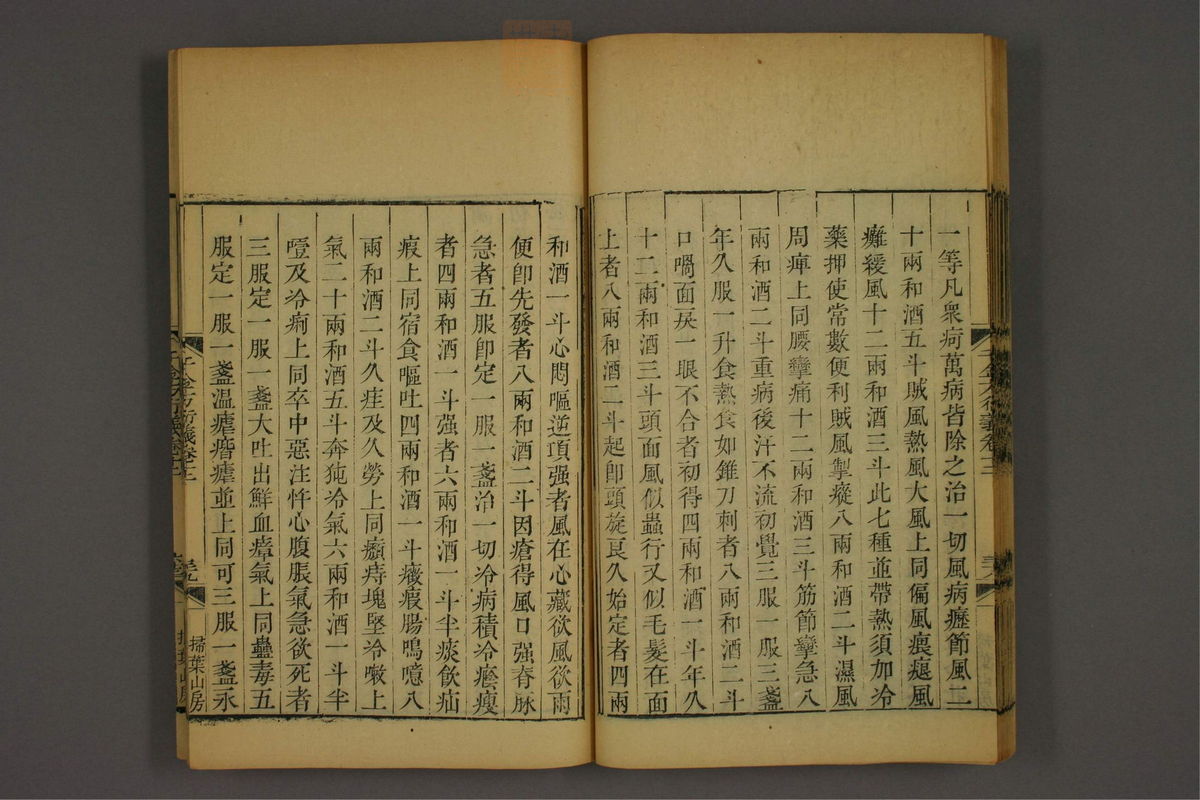 一等凡衆疴萬病皆除之治一切風病歷節風二
十兩和酒五斗賊風熱風大風上同偏風㾯㿗風
癱緩風十二兩和酒三斗此七種並帶熱須加冷
藥押使常數便利賊風掣瘲八兩和酒二斗濕風
周痺上同腰攣痛十二兩和酒三斗筋節攣急八
兩和酒二斗重病後汗不流初覺三服一服三盞
年久服一升食熱食如錐刀刺者八兩和酒二斗
口喎面戾一眼不合者初得四兩和酒一斗年久
十二兩和酒三斗頭面風似蟲行又似毛髮在面
上者八兩和酒二斗起卽頭旋良久始定者四兩
和酒一斗心悶嘔逆項强者風在心藏欲風欲雨
便卽先發者八兩和酒二斗因瘡得風口强脊脈
急者五服卽定一服一盞治一切冷病積冷痿瘦
者四兩和酒一斗强者六兩和酒一斗半痰飮疝
瘕上同宿食嘔吐四兩和酒一斗癥瘕腸鳴噫八
兩和酒二斗久疰及久勞上同癥痔塊堅冷嗽上
氣二十兩和酒五斗奔㹠冷氣六兩和酒一斗半
噎及冷痢上同卒中惡注忤心腹脹氣急欲死者
三服定一服一盞大吐出鮮血瘴氣上同蠱毒五
服定一服一盞溫瘧痎瘧並上同可三服一盞永
千金方衍義卷十二
掃葉山房